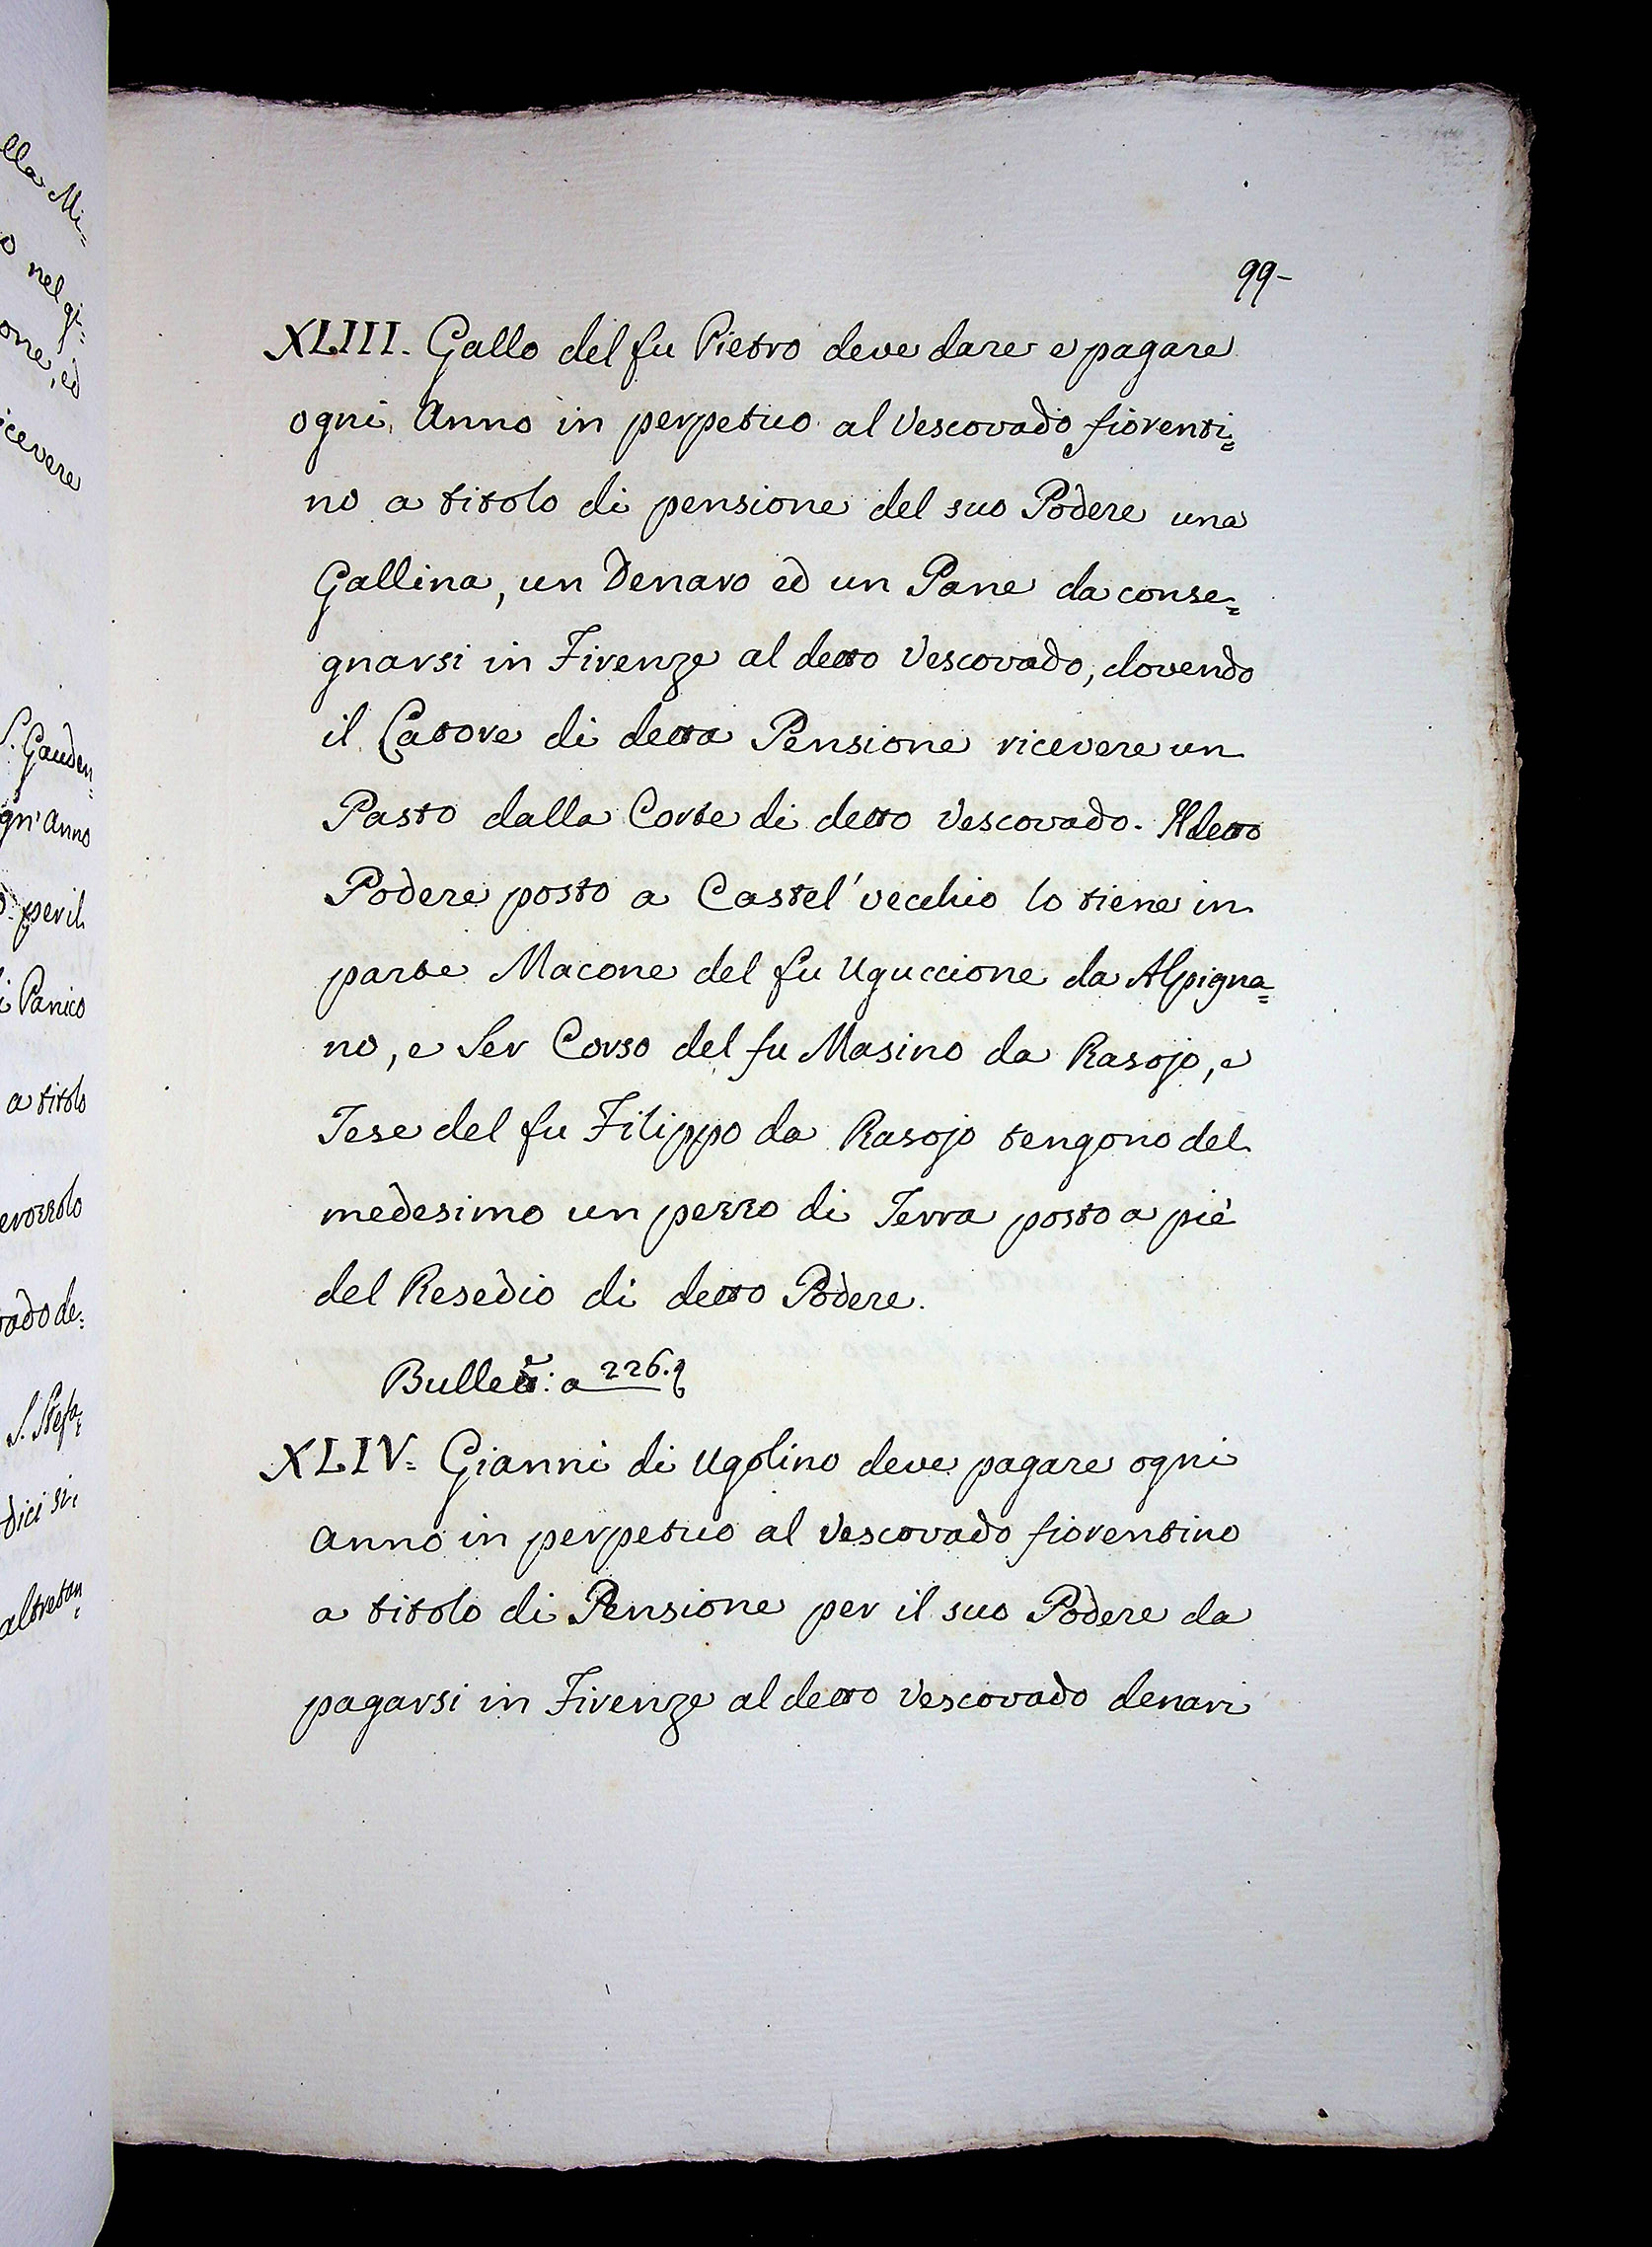 99-
XLIII. Gallo del fu Pietro deve dare e pagare
ogni Anno in perpetuo al Vescovado fiorenti=
no a titolo di pensione del suo Podere una
Gallina, un Denaro ed un Pane da conse=
gnarsi in Firenze al detto Vescovado, dovendo
il Latore di detta Pensione ricevere un
Pasto dalla Corte di detto Vescovado. Il detto
Podere posto a Castel'vecchio lo tiene in
parte Macone del fu Uguccione da Alpigna=
no, e Ser Corso del fu Masino da Rasojo, e
Tese del fu Filippo da Rasojo tengono del
medesimo un pezzo di Terra posto a piè
del Resedio di detto Podere.
Bullett: a 226.
XLIV= Gianni di Ugolino deve pagare ogni
Anno in perpetuo al Vescovado fiorentino
a titolo di Pensione per il suo Podere da
pagarsi in Firenze al detto Vescovado denari
lla Mi=
o nel
one, ed
icevere
S. Gauden=
gn'Anno
per il
i Panico
a titolo
evozzolo
vado de=
S. Stefa=
dici
altretan=